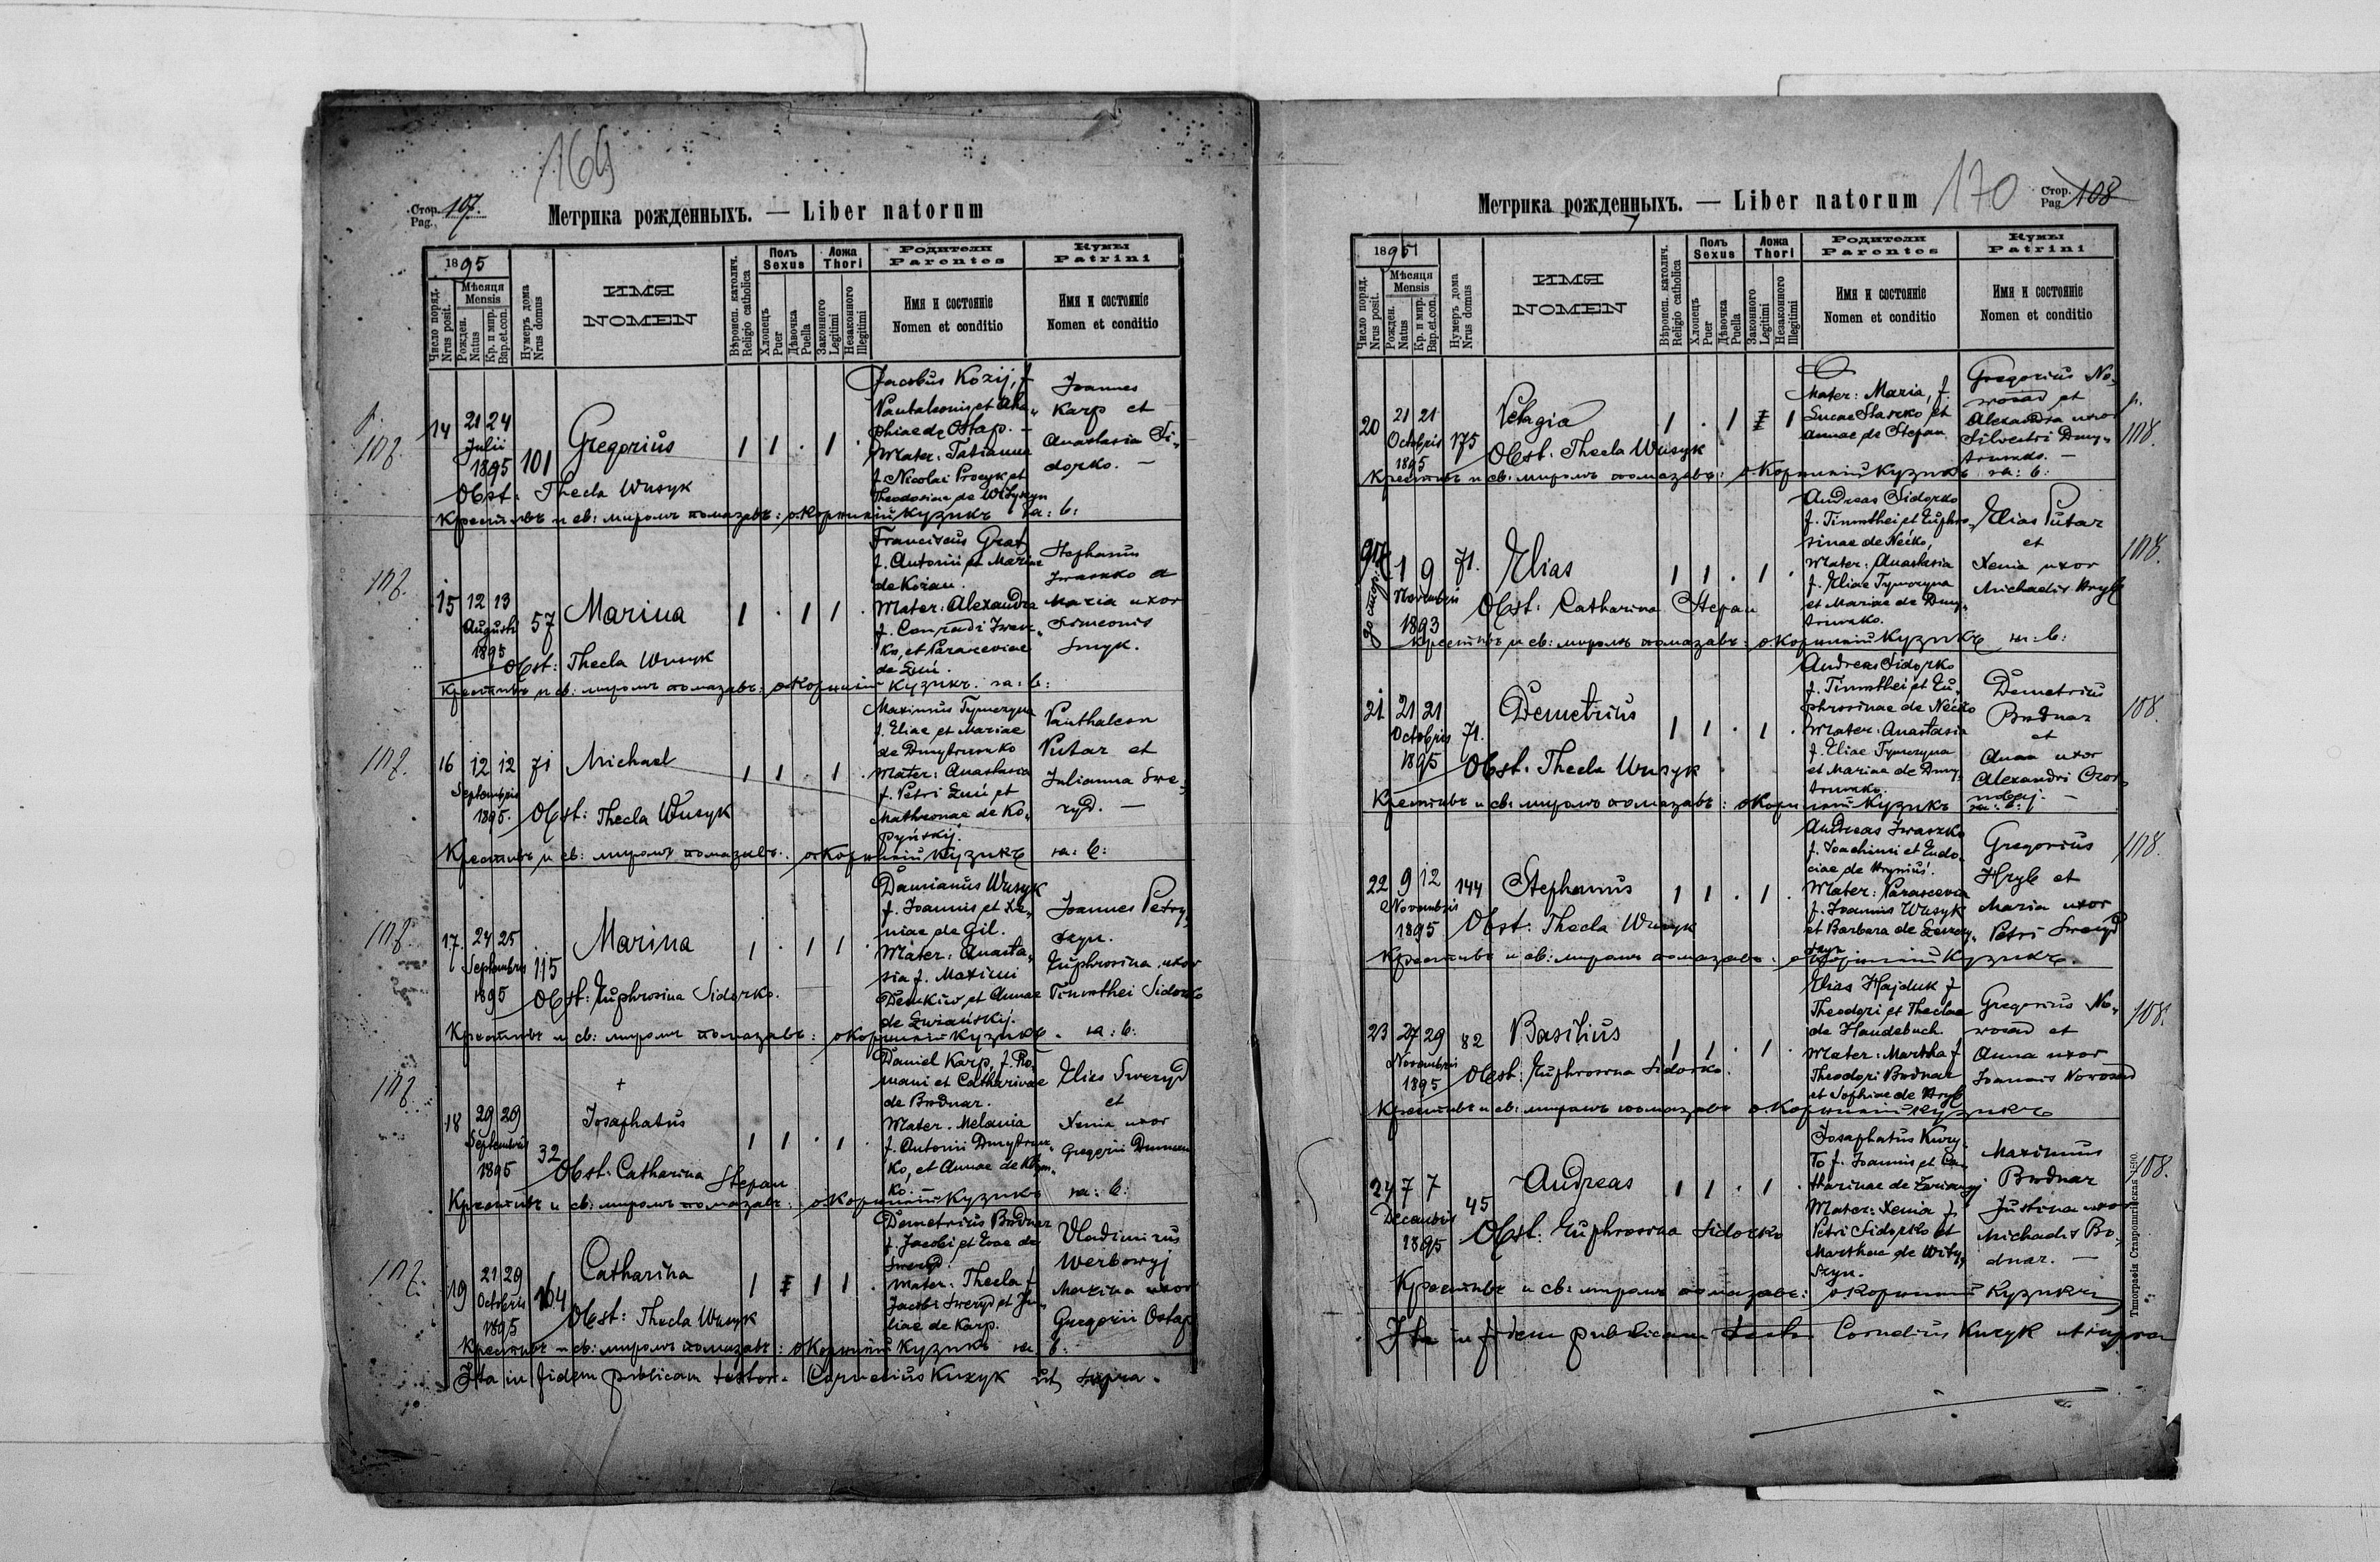 169
Стор. 107.
Pag.
Метрика рожденныхъ. — Liber natorum
1895
Число поряд.
Nrus posit.
Мѣсяця
Mensis
Рожден.
Natus
Кр. и мир.
Bap. et con.
Нумеръ дома
Nrus domus
ИМЯ
NOMEN
Вѣроисп. католич.
Religio catholica
Полъ
Sexus
Хлопецъ
Puer
Дѣвочка
Puella
Ложа
Thori
Законного
Legitimi
Незаконного
Illegitimi
Родители
Parentes
Имя и состояніе
Nomen et conditio
Кумы
Patrini
Имя и состояніе
Nomen et conditio
107.
14
21 24
Julii
1895
101
Gregorius
1 1 . 1 .
Obst: Thecla Wusyk
Jacobus Kozij, f.
Pantaleonis et Aga-
phiae de Ostap. —
Mater: Tatianna
f. Nicolai Procyk et
Theodosiae de Wityszyn
Joannes
Karp et
Anastasia Si-
dorko. —
Крестивъ и св: миромъ помазавъ: о. Корнилій Кузикъ на: б:
107.
15
12 13
Augusti
1895
57
Marina
1 . 1 1 .
Obst: Thecla Wusyk
Franciscus Graf
f. Antonii et Mariae
de Kozan.
Mater: Alexandra
f. Conradi Iwasz-
ko, et Parasceviae
de Zuń.
Stephanus
Iwaszko et
Maria uxor
Simeonis
Smyk.
Крестивъ и св: миромъ помазавъ: о Корнилій Кузикъ. на: б:
107.
16
12 12
Septembris
1895.
71
Michael
1 1 . 1 .
Obst: Thecla Wusyk
Maximus Tymczyna
f. Eliae et Mariae
de Dmytrunko
Mater: Anastasia
f. Petri Zuń et
Mathronae de Ko-
pyńskij.
Panthaleon
Putar et
Julianna Swe-
ryd. —
Крестивъ и св: миромъ помазавъ: о Корнилій Кузикъ на: б:
107.
17.
24 25
Septembris
1895
115
Marina
1 . 1 1 .
Obst: Euphrosina Sidorko.
Damianus Wusyk
f. Joannis et Xe-
niae de Gil.
Mater: Anasta-
sia f. Maximi
Demkiw et Annae
de Zwiańskij.
Joannes Petry-
szyn.
Euphrosina uxor
Timothei Sidorko
Крестивъ и св: миромъ помазавъ: о Корнилій Кузикъ. на: б:
107.
18
29 29
Septembris
1895
32
+
Josaphatus
1 1 . 1 .
Obst. Catharina Stepan
Daniel Karp, f. Ro-
mani et Catharinae
de Bodnar.
Mater. Melania
f. Antonii Dmytrun-
ko, et Annae de
ko.
Elias Sweryd
et
Xenia uxor
Gregorii
Крестивъ и св: миромъ помазавъ: о Корнилій Кузикъ на: б:
107.
19
21 29
Octobris
1895
164
Catharina
1 1 1 .
Obst: Thecla Wusyk
Demetrius Bodnar
f. Jacobi et Evae de
Sweryd.
Mater: Thecla f.
Jacobi Sweryd et Ju-
liae de Karp.
Vladimirus
Werbowyj
Marina uxor
Gregorii Ostap
Крестивъ и св: миромъ помазавъ: о Корнилій Кузикъ на: б:
Ita in fidem publicam testor. Cornelius Kuzyk ut supra.
170
Стор. 108
Pag.
Метрика рожденныхъ. — Liber natorum
1895
Число поряд.
Nrus posit.
Мѣсяця
Mensis
Рожден.
Natus
Кр. и мир.
Bap. et con.
Нумеръ дома
Nrus domus
ИМЯ
NOMEN
Вѣроисп. католич.
Religio catholica
Полъ
Sexus
Хлопецъ
Puer
Дѣвочка
Puella
Ложа
Thori
Законного
Legitimi
Незаконного
Illegitimi
Родители
Parentes
Имя и состояніе
Nomen et conditio
Кумы
Patrini
Имя и состояніе
Nomen et conditio
20
21 21
Octobris
1895
175
Pelagia
1 . 1 1
Obst. Thecla Wusyk
Mater: Maria, f.
Lucae Staszko et
Annae de Stepan.
Gregorius No-
wosad et
Alexandra uxor
Silvestri Dmy-
trunko. —
108.
Крестивъ и св: миромъ помазавъ: о Корнилій Кузикъ на: б:
1 9
Novembris
1893
71.
Elias
1 1 . 1 .
Obst: Catharina Stepan
Andreas Sidorko
f. Timothei et Euphro-
sinae de Nećko,
Mater: Anastasia
f. Eliae Tymczyna
et Mariae de Dmy-
trunko.
Elias Putar
et
Xenia uxor
Michaelis Hryb
108.
Крестивъ и св: миромъ помазавъ: о. Корнилій Кузикъ на: б:
21
21 21
Octobris
1895
71.
Demetrius
1 1 . 1 .
Obst. Thecla Wusyk
Andreas Sidorko
f. Timothei et Eu-
phrosinae de Nećko
Mater: Anastasia
f. Eliae Tymczyna
et Mariae de Dmy-
trunko.
Demetrius
Bodnar
et
Anna uxor
Alexandri
108.
Крестивъ и св: миромъ помазавъ: о Корнилій Кузикъ на: б:
22
9 12
Novembris
1895
144
Stephanus
1 1 . 1 .
Obst. Thecla Wusyk
Andreas Iwaszko
f. Joachimi et Eudo-
ciae de Hryniuś.
Mater: Parascevia
f. Joannis Wusyk
et Barbara de
Gregorius
Hryb et
Maria uxor
Petri Sweryd
108.
Крестивъ и св: миромъ помазавъ. о Корнилій Кузикъ.
23
27 29
Novembris
1895
82
Basilius
1 1 . 1 .
Obst: Euphrosina Sidorko.
Elias Hajduk f.
Theodori et Theclae
de Haudebuch.
Mater: Martha f.
Theodori Bodnar
et Sophiae de Hryb
Gregorius No-
wosad et
Anna uxor
Joannis Nowosad
108.
Крестивъ и св: миромъ помазавъ о. Корнилій Кузикъ
24
7 7
Decembris
1895
45
Andreas
1 1 . 1 .
Obst: Euphrosina Sidorko
Josaphatus Kury-
To f. Joannis et Ca-
tharinae de
Mater: Xenia f.
Petri Sidorko et
Marthae de Wity-
szyn.
Maximus
Bodnar
Justina uxor
Michaelis Bo-
dnar. —
108.
Крестивъ и св: миромъ помазавъ: о. Корнилій Кузикъ
Ita in fidem publicam testor Cornelius Kuzyk ut supra
Типографія Ставропигійская 1890.